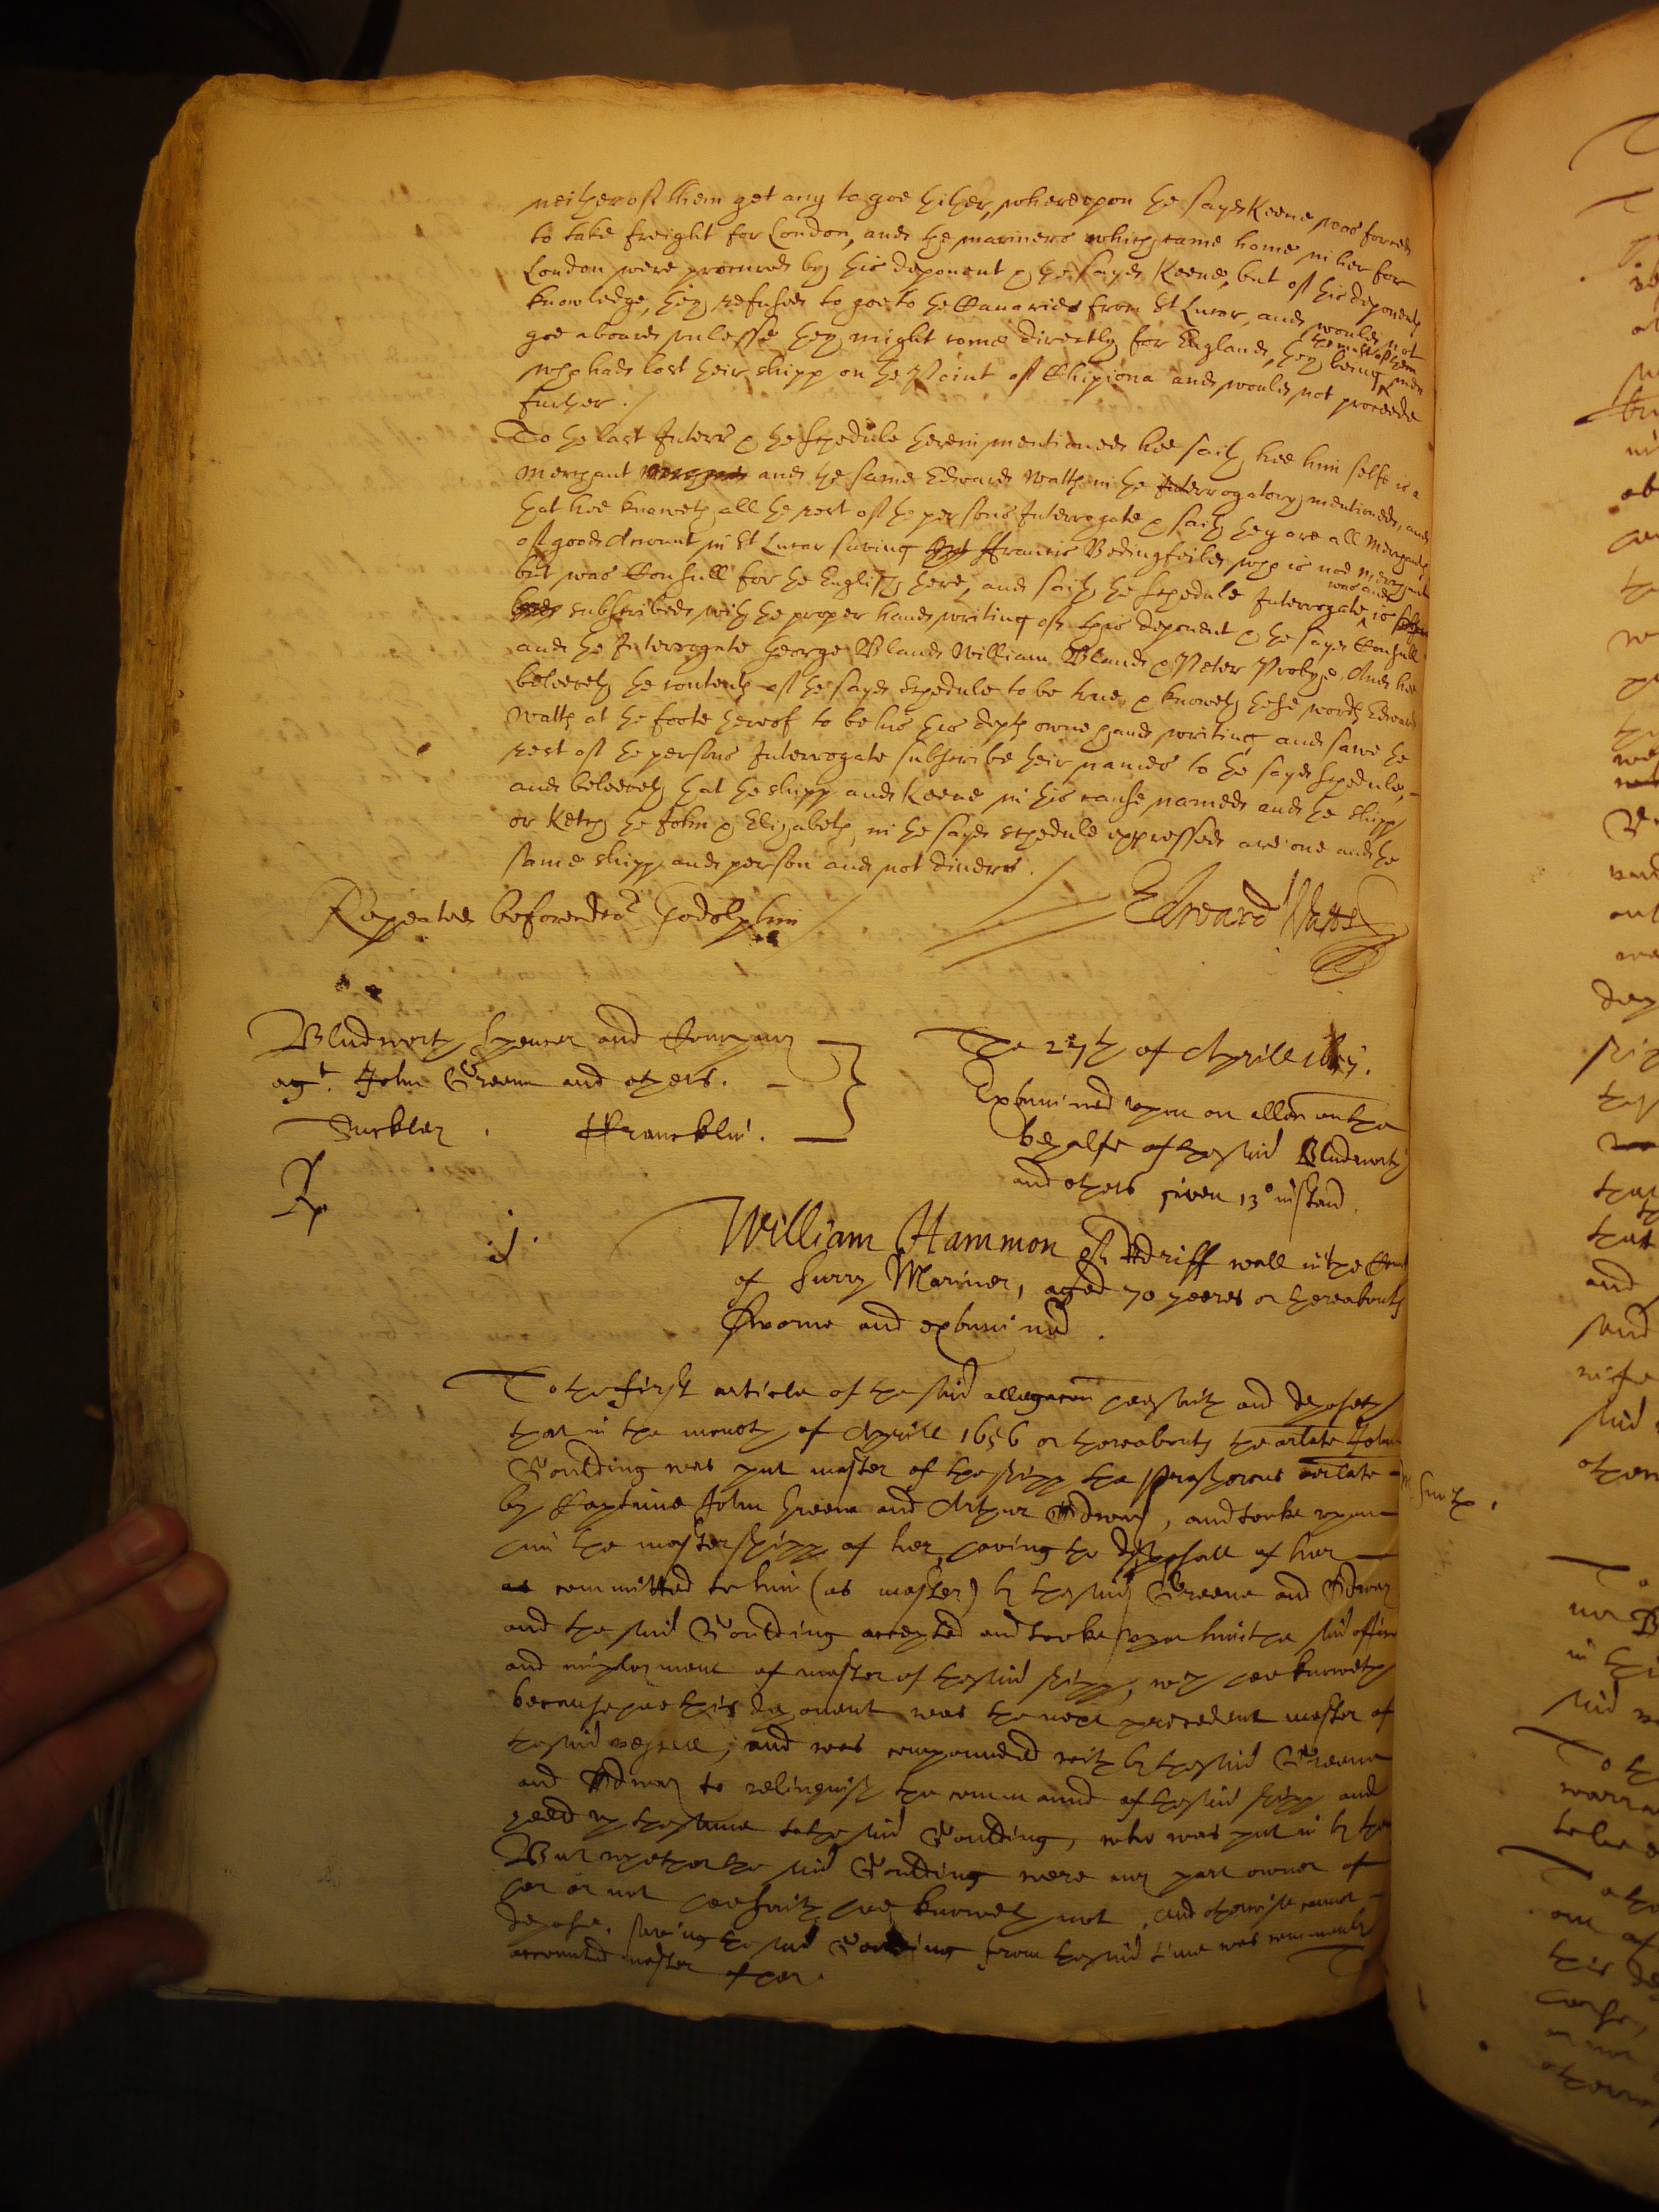 neither of them get any to goe thither, whereupon the sayd Keene was forced
to take freight for London, and the mariners which came home in her for
London were procured by this deponent & the sayd Keene, but of this deponents
knowledge, they refused to goe to the Canaries from St Lucar, and would not
goe aboard unlesse they might come directly for England, they being the most of them men
who had lost their shipp on the Point of Chipiona and would not proceede
further.
To the last Interr & the schedule therein mentioned hee saith hee him selfe is a
Merchant and the same Edward Watts in the Interrogatory mentioned, and
that hee knoweth all the rest of the persons Interrogate & saith they are all Merchants
of good Account in St Lucar saving ffrancis Bedingfeild, who is noe Merchant
but was Consull for the English there, and saith the schedule Interrogate was and is
subscribed with the proper hand writing of this deponent & the sayd Consull
and the Interrogate George Bland William Bland & Peter Probye, And hee
beleeveth the contents of the sayd schedule to be true, & knoweth these words Edward
Watts at the foote thereof to be his this depts owne hand writing and sawe the
rest of the persons Interrogate subscribe their names to the sayd schedule,
and beleeveth that the shipp and Keene in this cause named and the shipp
or Ketch the John & Elizabeth in the sayd schedule expressed are one and the
same shipp and person and not divers.
Repeated before doctor Godolphin
Edward Watts
Bludworth, Spencer and Company
agt. John Greene and others.
Suckley. ffrancklin.
The 27th of Aprill
Examined upon an allon on the
behalfe of the said Bludworth
and others given 13º instand.
Rp
j.
William Hammon of Redriff wall in the County
of Surry Mariner, aged 70 yeeres or thereabouts
sworne and examined.
To the first article of the said allegacon hee saith and deposeth
that in the moneth of Aprill 1656 or thereabouts the arlate John
Goulding was put master of the shipp the Prosperous arlate
by Captaine John Greene and Arthur, and tooke upon
him the mastershipp of her, having the disposall of her
committed to him (as master) by the said Greene and
and the said Goulding accepted and tooke upon him the said office
and imployment of master of the said shipp, wch hee knoweth
because hee this deponent was the next precedent master of
the said vessell, and was compounded with by the said Greene
and to relinquish the command of the said shipp and
yeeld up the same to the said Goulding, who was put in by them
But whether the said Goulding were any part owner of
her or not hee saith hee knoweth not, and otherwise cannot
depose, saving the said Goulding from the said time was commonly
accounted master of her.
To